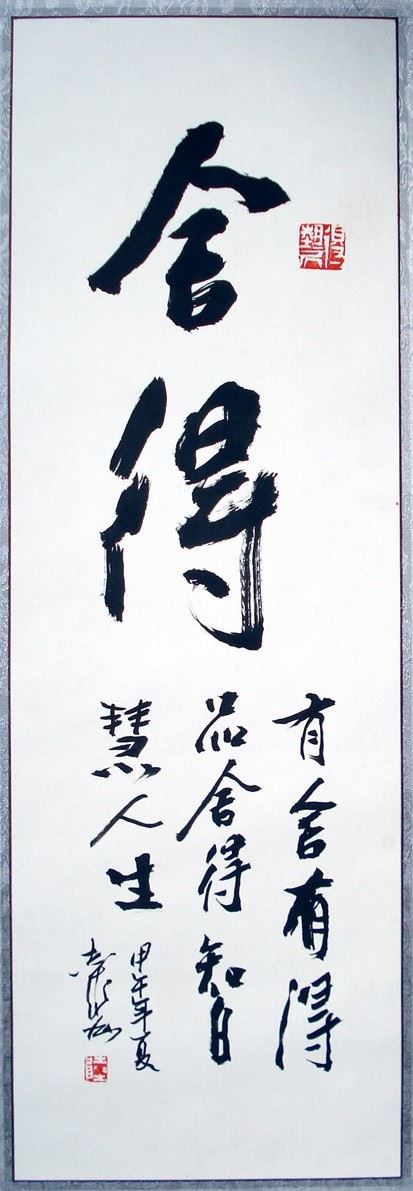 舍得
有舍有得
品舍得智
慧人生
甲午年夏